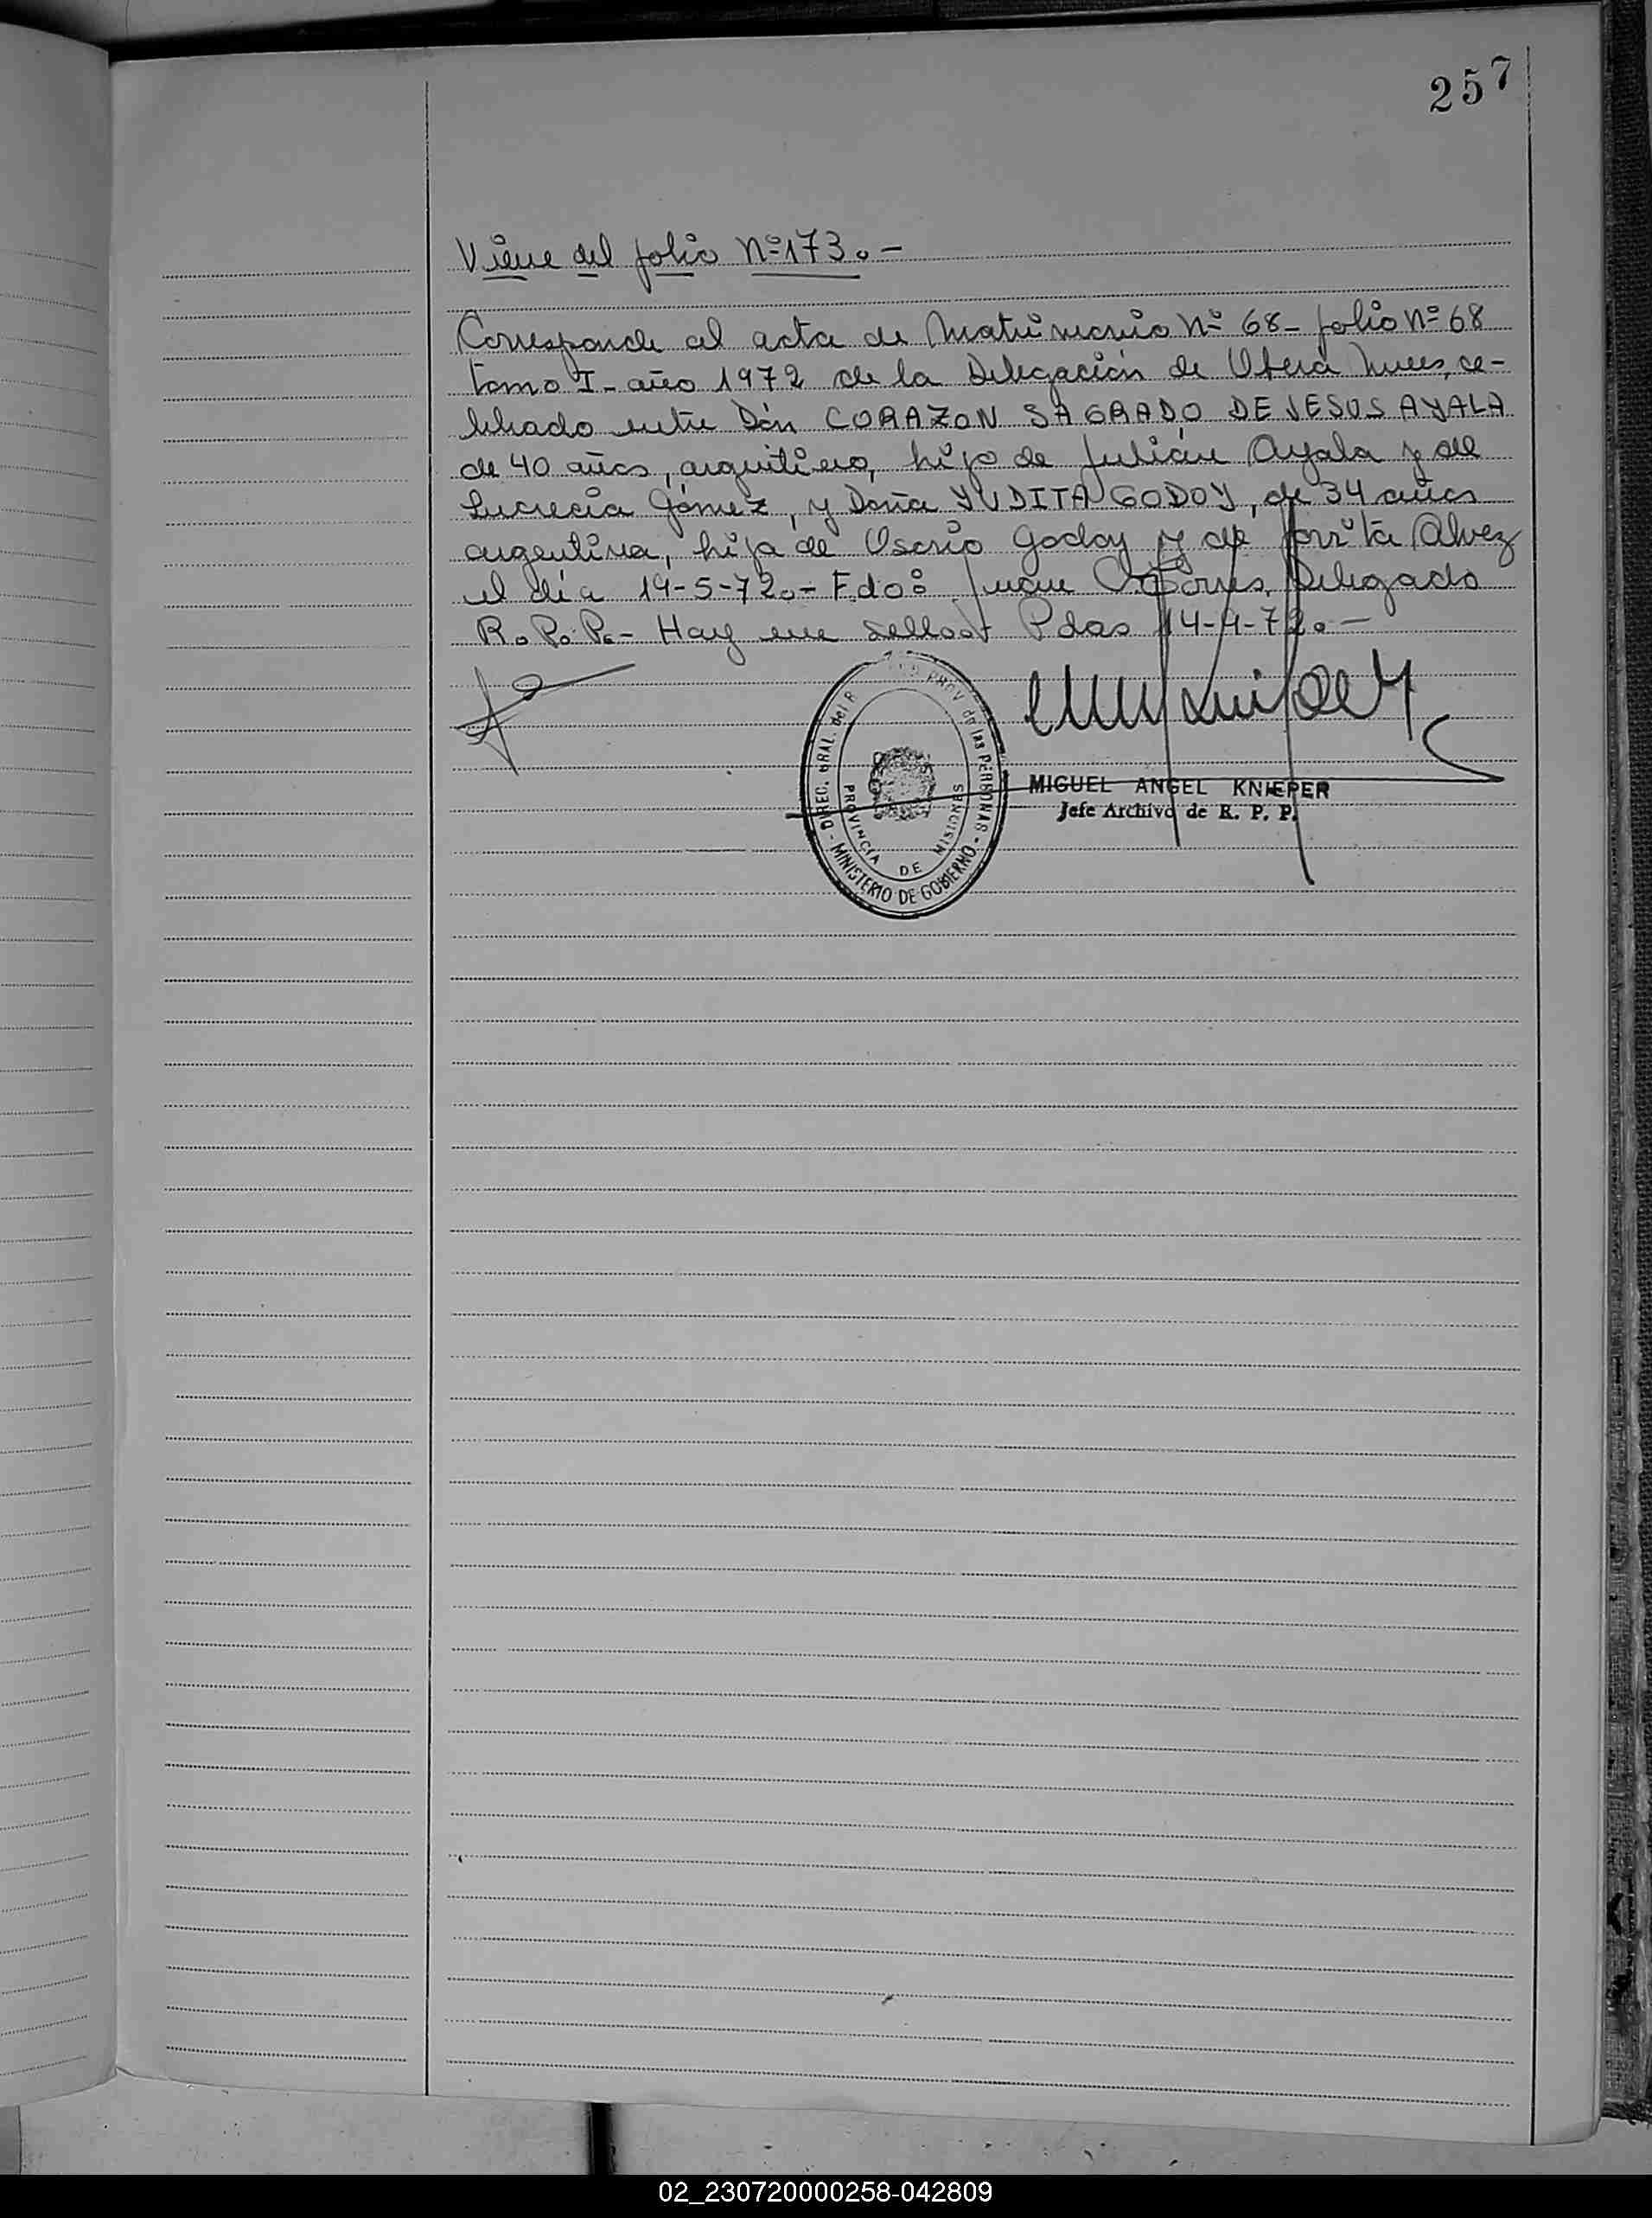 257
Viene del folio Nº 173.-
Corresponde al acta de Matrimonio Nº 68- folio Nº 68
tomo I- año 1972 de la Delegación de Oberá, ce-
lebrado entre Dón CORAZON SAGRADO DE JESUS AYALA
de 40 años, argentino, hijo de Julián Ayala y de
Lucrecia Gómez, y Doña YUDITA GODOY, de 34 años
argentina, hija de Osorio Godoy y de Alvez
el día 19-5-72.- Fdo: Juan Torres, Delegado
R.P.P.- Hay un sello. Pdas 14-9-72.-
DIREC. GRAL. del R PROV de las PERSONAS - MINISTERIO DE GOBIERNO -
PROVINCIA DE MISIONES
MIGUEL ANGEL KNIEPER
Jefe Archivo de R. P. P.
02_230720000258-042809